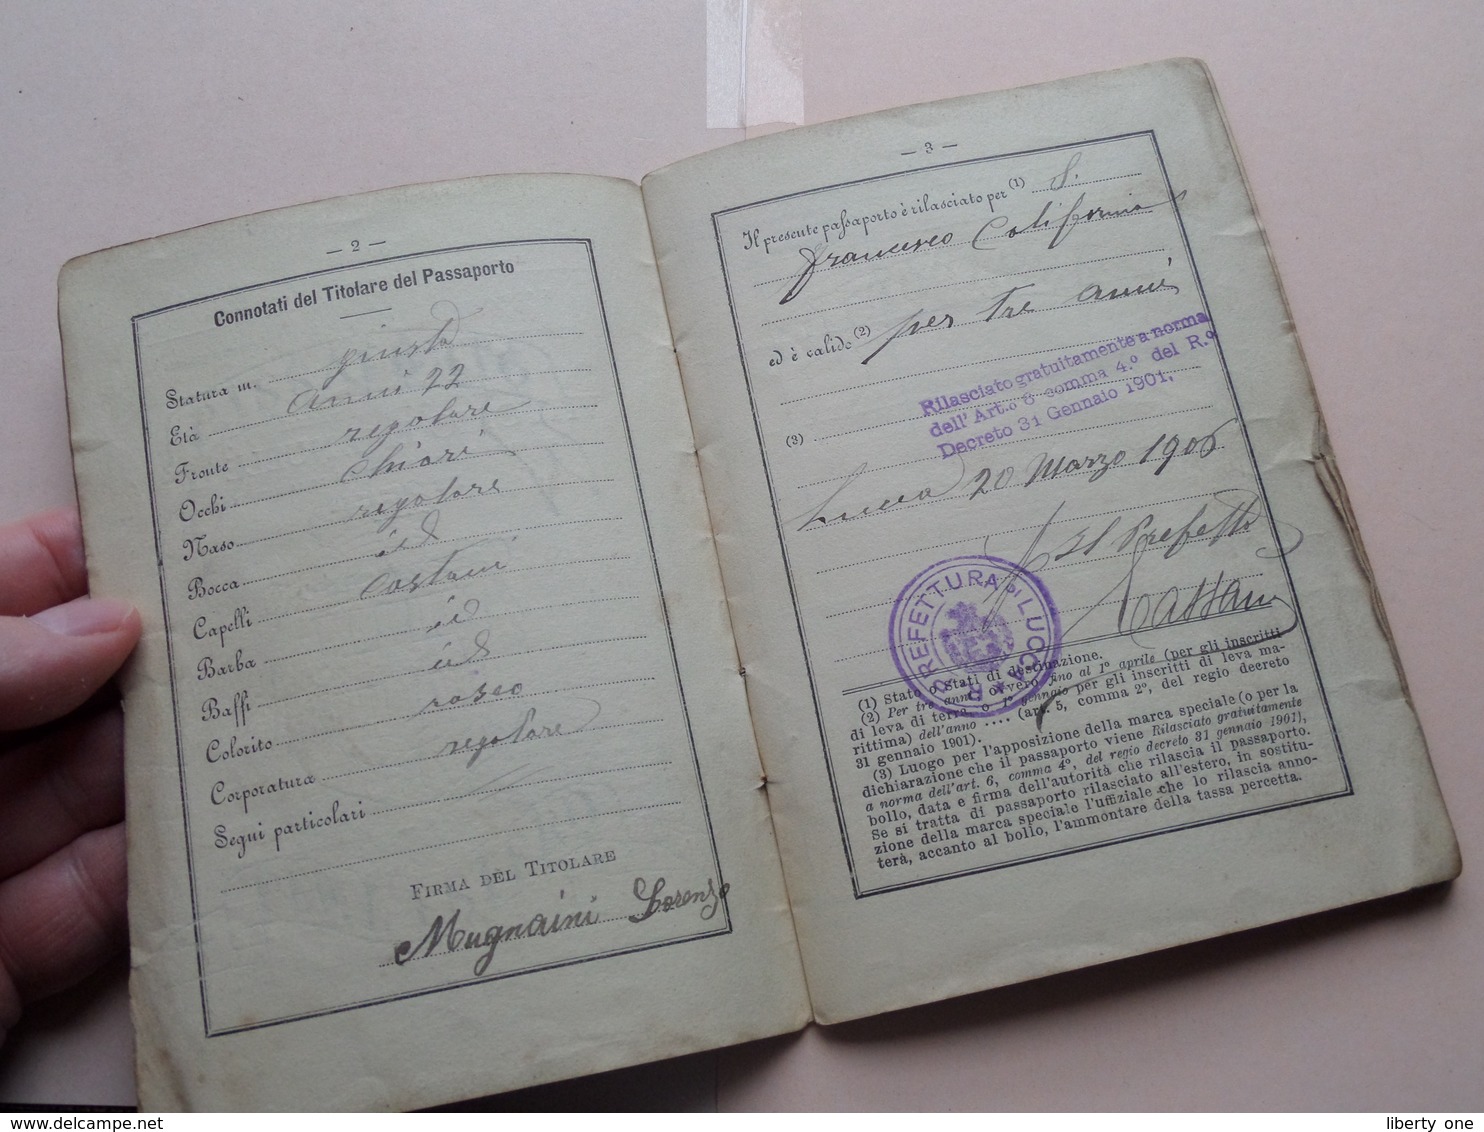 — 2 —
Connotati del Titolare del Passaporto
Statura m. giusta
Età anni 22
Fronte regolare
Occhi chiari
Naso regolare
Bocca id
Capelli castani
Barba id
Baffi id
Colorito roseo
Corporatura regolare
Segni particolari
FIRMA DEL TITOLARE
Mugnaini Lorenzo
— 3 —
Il presente passaporto è rilasciato per (1) S.
Francesco California
ed è valido (2) per tre anni
Rilasciato gratuitamente a norma
dell'Art.o 6 comma 4.° del R.o
Decreto 31 Gennaio 1901.
(3)
Lucca 20 Marzo 1906
Il Prefetto
PREFETTURA DI LUCCA
(1) Stato o Stati di destinazione.
(2) Per tre anni, ovvero fino al 1° aprile (per gli inscritti
di leva di terra, o 1° gennaio per gli inscritti di leva ma-
rittima) dell'anno .... (art. 5, comma 2°, del regio decreto
31 gennaio 1901).
(3) Luogo per l'apposizione della marca speciale (o per la
dichiarazione che il passaporto viene Rilasciato gratuitamente
a norma dell'art. 6, comma 4°, del regio decreto 31 gennaio 1901),
bollo, data e firma dell'autorità che rilascia il passaporto.
Se si tratta di passaporto rilasciato all'estero, in sostitu-
zione della marca speciale l'uffiziale che lo rilascia anno-
terà, accanto al bollo, l'ammontare della tassa percetta.
www.delcampe.net
liberty one